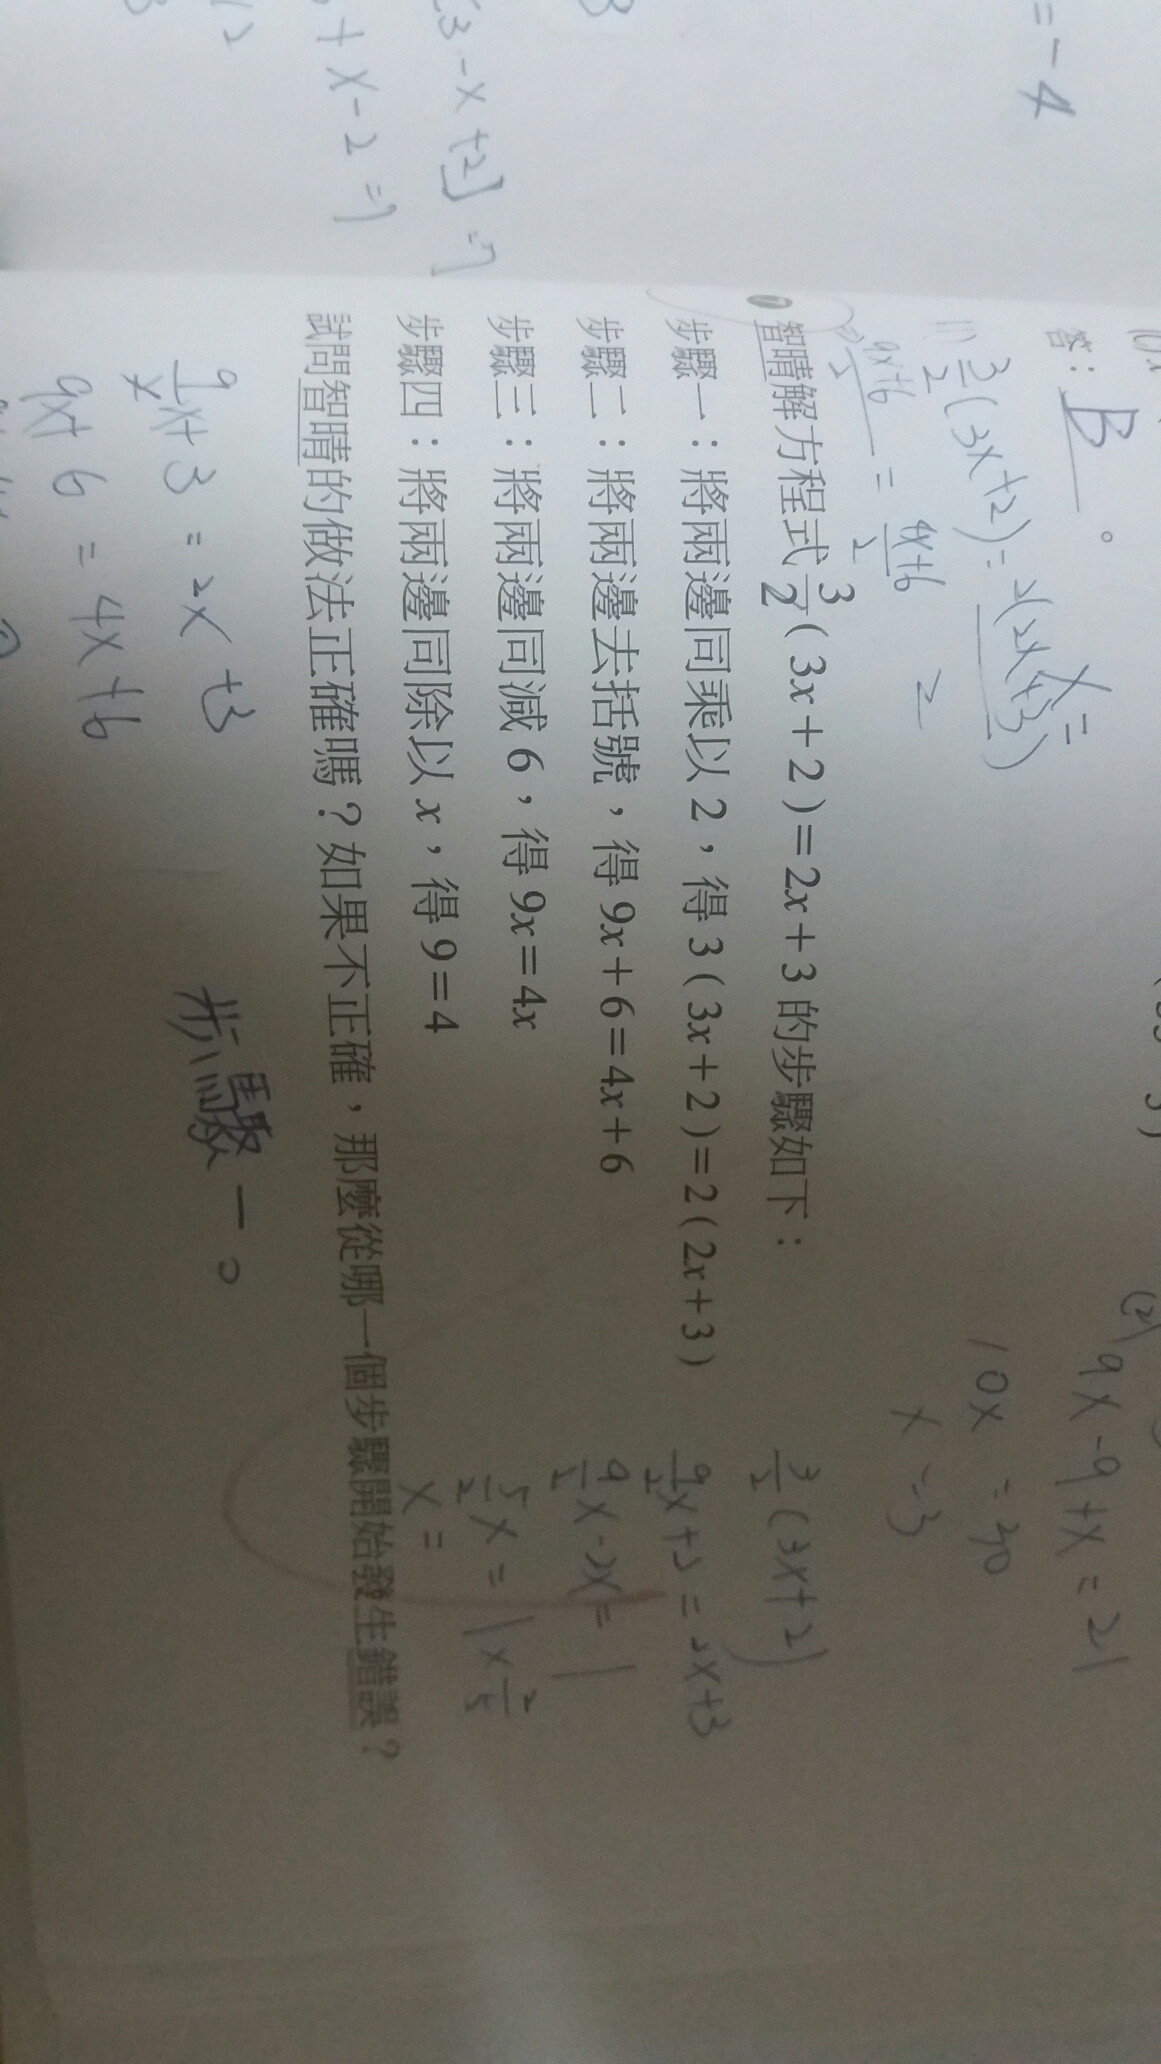 =-4
[3-x+2]=7
+x-2=7
答：B。
x=
(1) 3/2(3x+2)=2(2x+3)
⇒ 9x+6/2=4x+6/2
(2) 9x-9+x=21
10x=30
x=3
智晴解方程式3/2(3x+2)=2x+3的步驟如下：
步驟一：將兩邊同乘以2，得3(3x+2)=2(2x+3)
步驟二：將兩邊去括號，得9x+6=4x+6
步驟三：將兩邊同減6，得9x=4x
步驟四：將兩邊同除以x，得9=4
試問智晴的做法正確嗎？如果不正確，那麼從哪一個步驟開始發生錯誤？
3/2(3x+2)
9/2x+2=2x+3
9/2x-2x=1
5/2x=1×2/5
x=
9/2x+3=2x+3
9x+6=4x+6
步驟一。